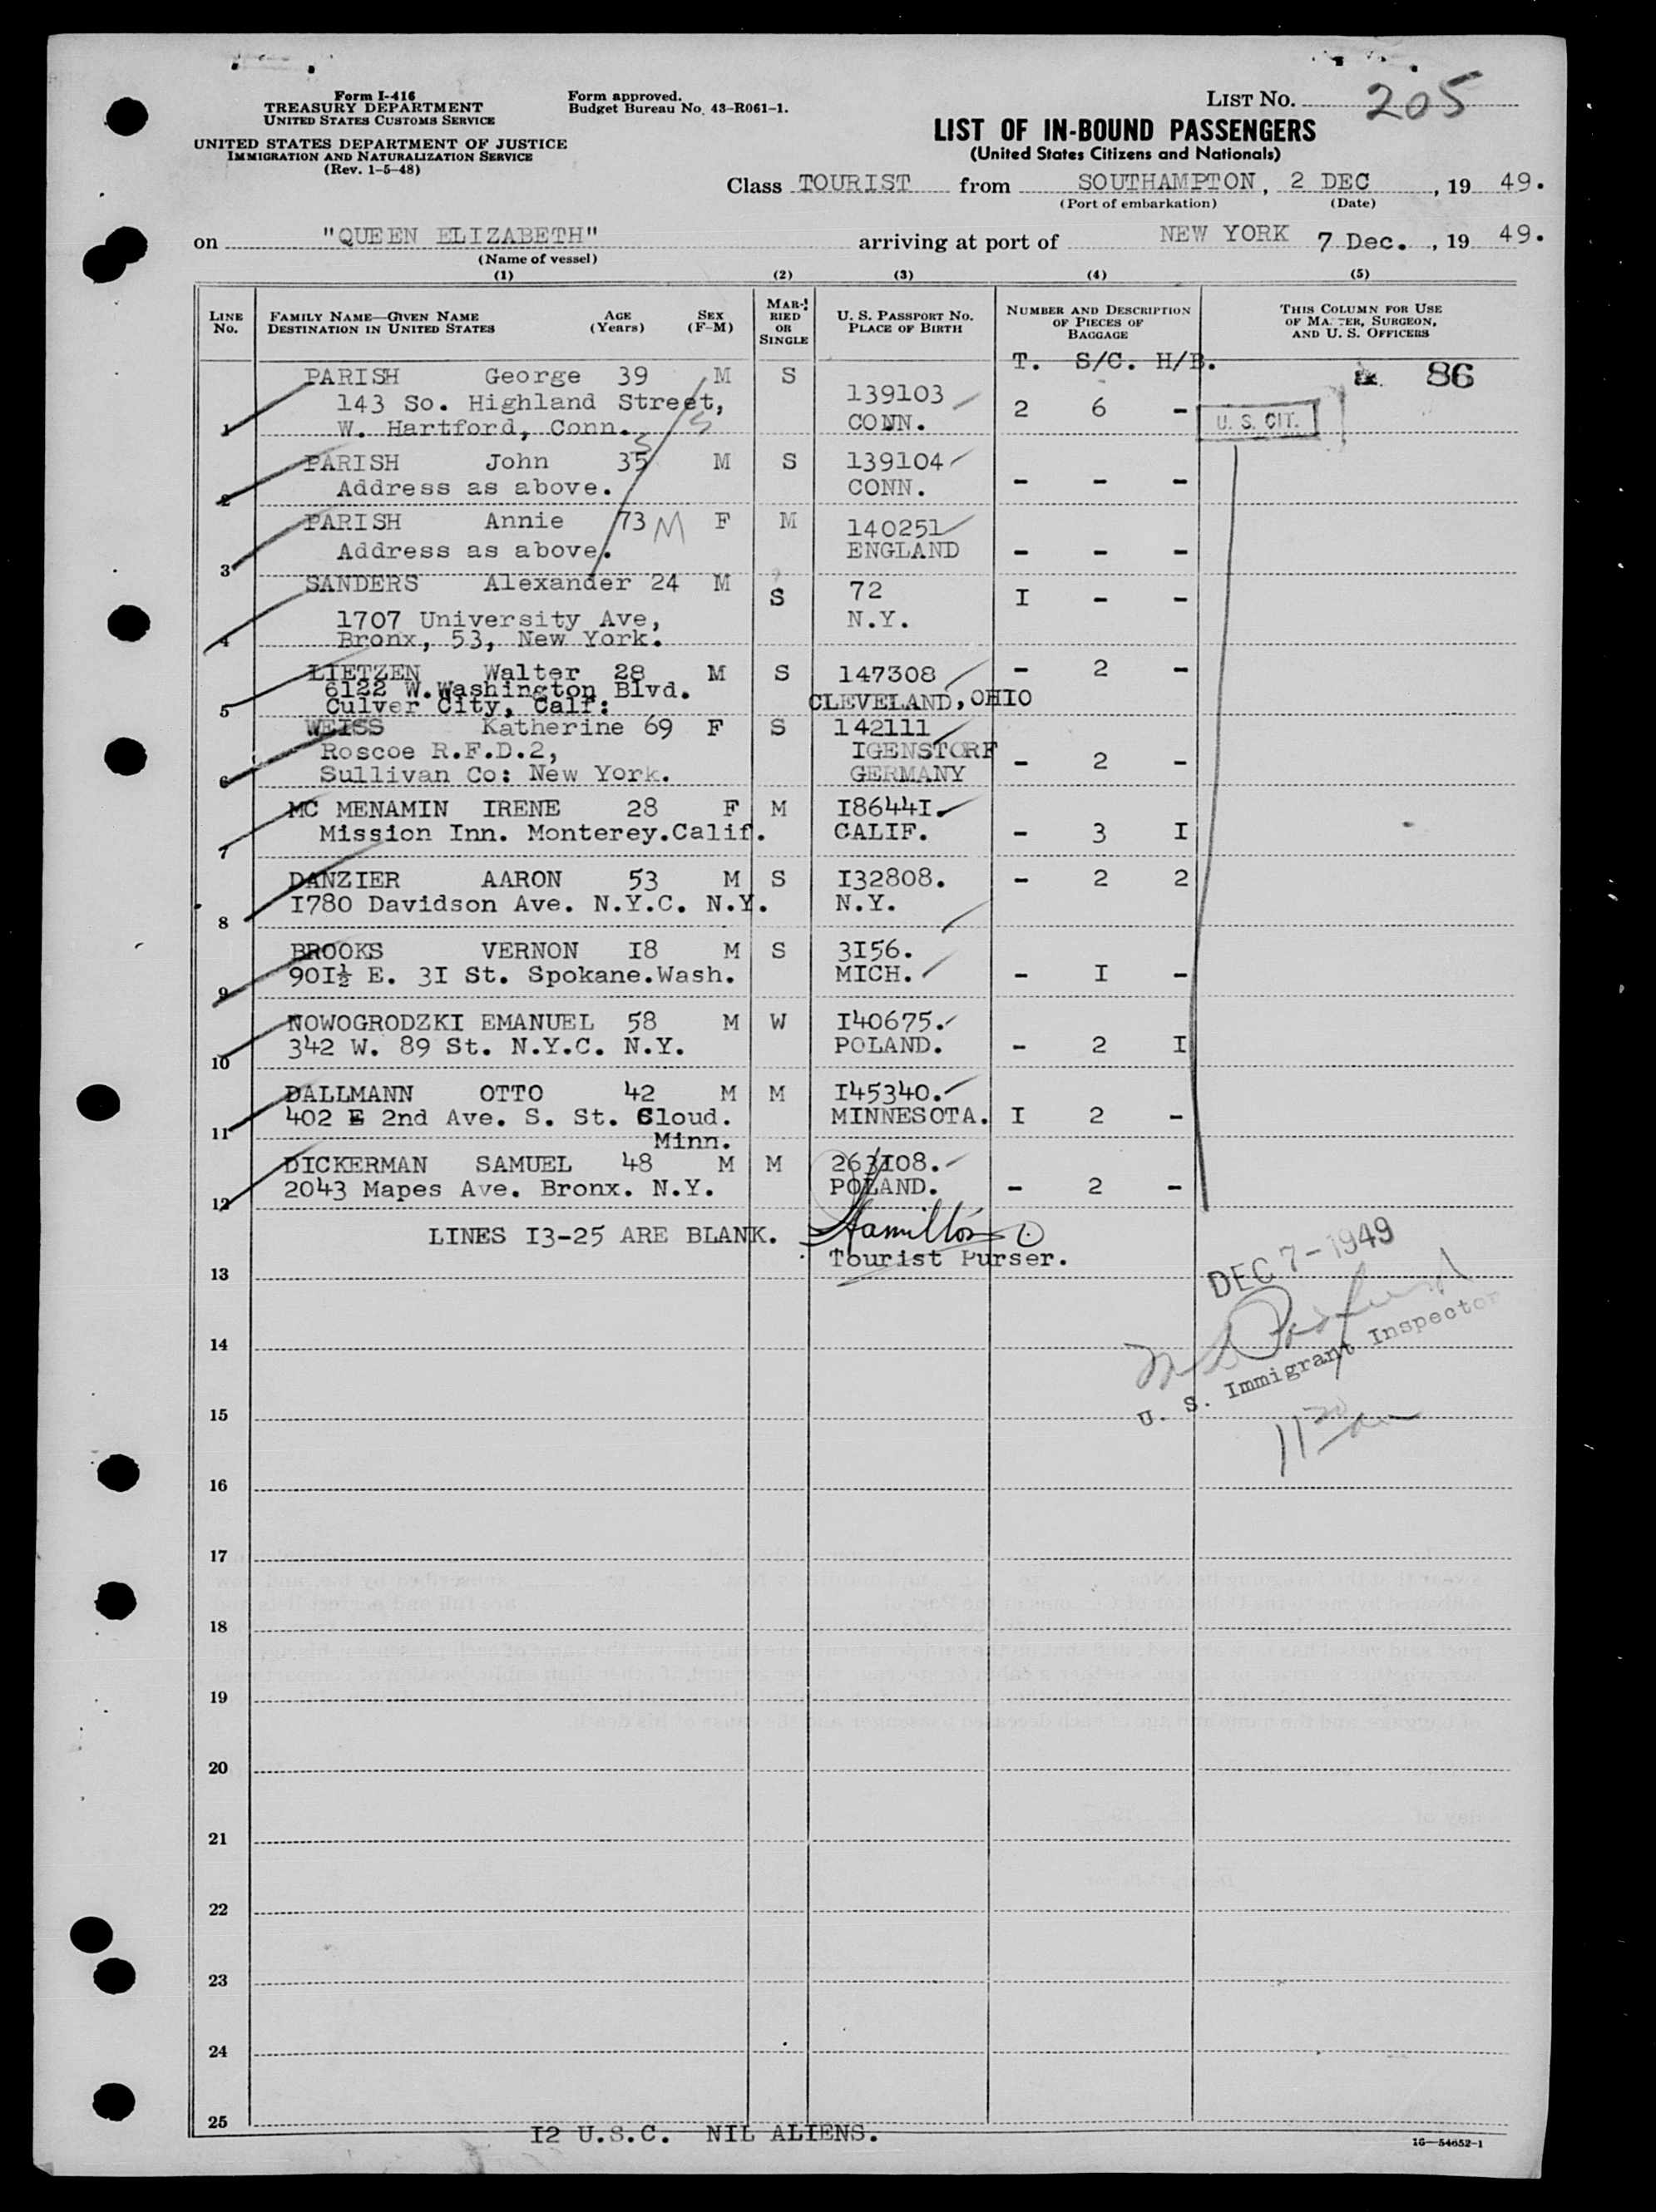 Form I-416
TREASURY DEPARTMENT
UNITED STATES CUSTOMS SERVICE
UNITED STATES DEPARTMENT OF JUSTICE
IMMIGRATION AND NATURALIZATION SERVICE
(Rev. 1-5-48)
Form approved.
Budget Bureau No. 43-R061-1.
LIST NO. 205
LIST OF IN-BOUND PASSENGERS
(United States Citizens and Nationals)
Class TOURIST from SOUTHAMPTON, 2 DEC , 19 49.
(Port of embarkation) (Date)
on "QUEEN ELIZABETH" arriving at port of NEW YORK 7 Dec. , 19 49.
(Name of vessel)
(1) (2) (3) (4) (5)
LINE No. FAMILY NAME—GIVEN NAME DESTINATION IN UNITED STATES AGE (Years) SEX (F-M) MARRIED OR SINGLE U. S. PASSPORT NO. PLACE OF BIRTH NUMBER AND DESCRIPTION OF PIECES OF BAGGAGE THIS COLUMN FOR USE OF MASTER, SURGEON, AND U. S. OFFICERS
T. S/C. H/B.
86
PARISH George 39 M S 139103
143 So. Highland Street, 2 6 - U. S. CIT.
1 W. Hartford, Conn. CONN.
PARISH John 35 M S 139104
2 Address as above. CONN. - - -
PARISH Annie 73 M F M 140251
3 Address as above. ENGLAND - - -
SANDERS Alexander 24 M S 72 I - -
1707 University Ave, N.Y.
4 Bronx, 53, New York.
LIETZEN Walter 28 M S 147308 - 2 -
6122 W.Washington Blvd. CLEVELAND, OHIO
5 Culver City, Calf:
WEISS Katherine 69 F S 142111
Roscoe R.F.D.2, IGENSTORF - 2 -
6 Sullivan Co: New York. GERMANY
MC MENAMIN IRENE 28 F M I8644I.
7 Mission Inn. Monterey.Calif. CALIF. - 3 I
DANZIER AARON 53 M S I32808. - 2 2
8 I780 Davidson Ave. N.Y.C. N.Y. N.Y.
BROOKS VERNON I8 M S 3I56.
9 90I½ E. 3I St. Spokane.Wash. MICH. - I -
NOWOGRODZKI EMANUEL 58 M W I40675.
10 342 W. 89 St. N.Y.C. N.Y. POLAND. - 2 I
DALLMANN OTTO 42 M M I45340.
11 402 E 2nd Ave. S. St. Cloud. MINNESOTA. I 2 -
Minn.
DICKERMAN SAMUEL 48 M M 263I08.
12 2043 Mapes Ave. Bronx. N.Y. POLAND. - 2 -
LINES I3-25 ARE BLANK. Hamilton
13 Tourist Purser.
DEC 7-1949
U. S. Immigrant Inspector
11 30 am
14
15
16
17
18
19
20
21
22
23
24
25
I2 U.S.C. NIL ALIENS.
16—54652-1